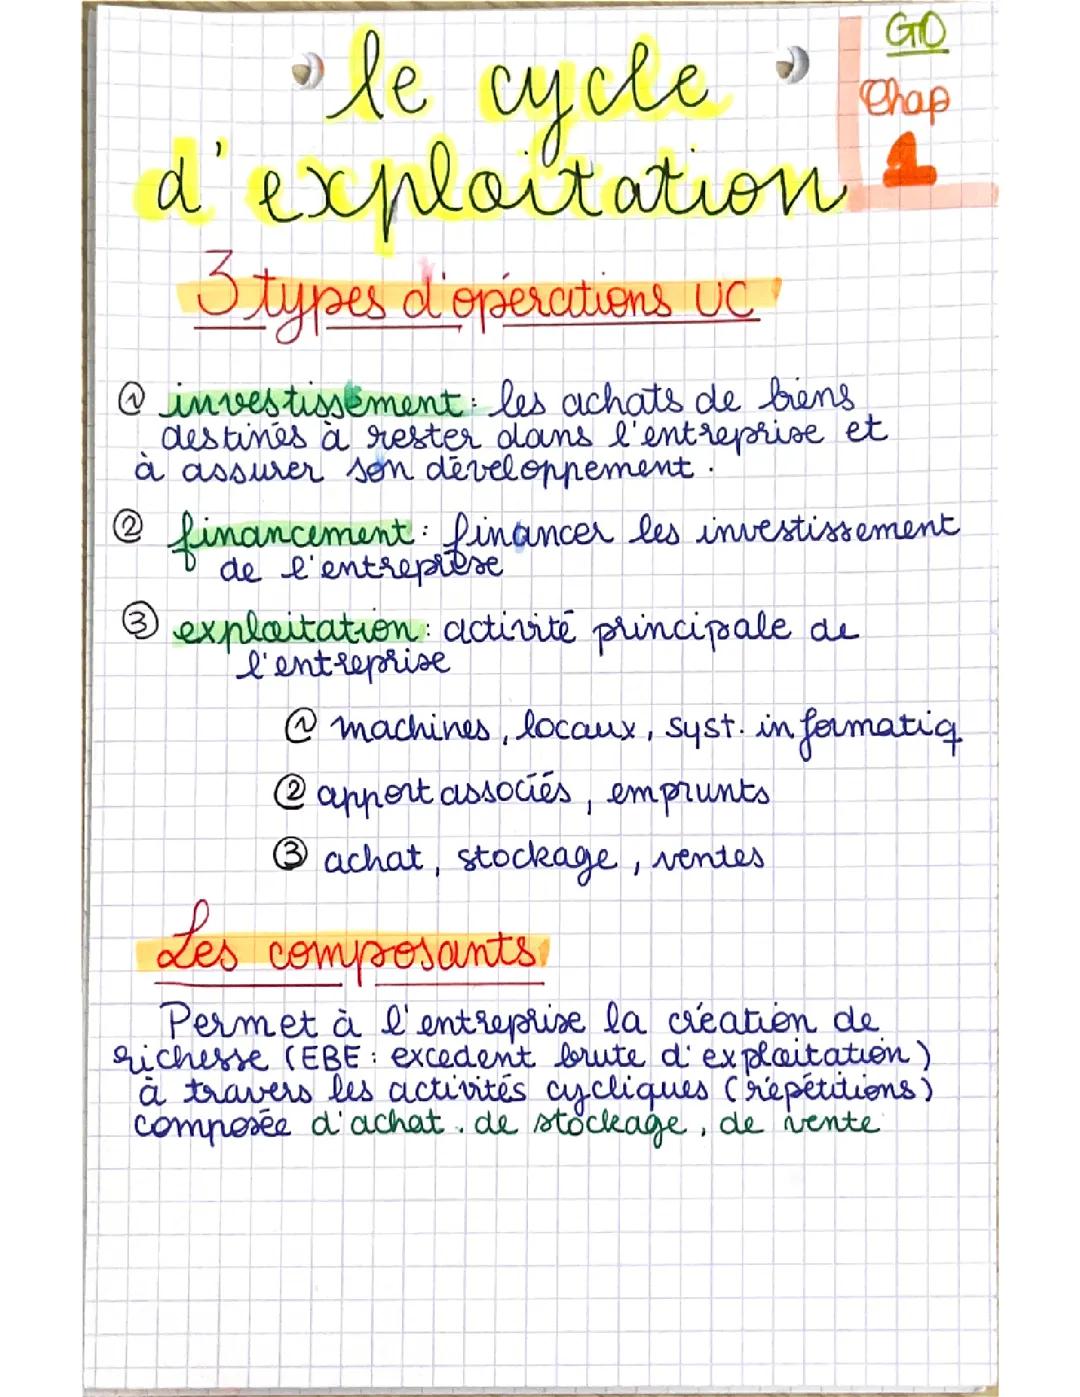 GO
Chap
1
le cycle
d'exploitation
3 types d'opérations UC
① investissement : les achats de biens
destinés à rester dans l'entreprise et
à assurer son développement .
② financement : financer les investissement
de l'entreprise
③ exploitation : activité principale de
l'entreprise
① machines, locaux, syst. informatiq
② apport associés, emprunts
③ achat, stockage, ventes
Les composants
Permet à l'entreprise la création de
richesse (EBE : excedent brute d'exploitation)
à travers les activités cycliques (répétitions)
composée d'achat. de stockage, de vente